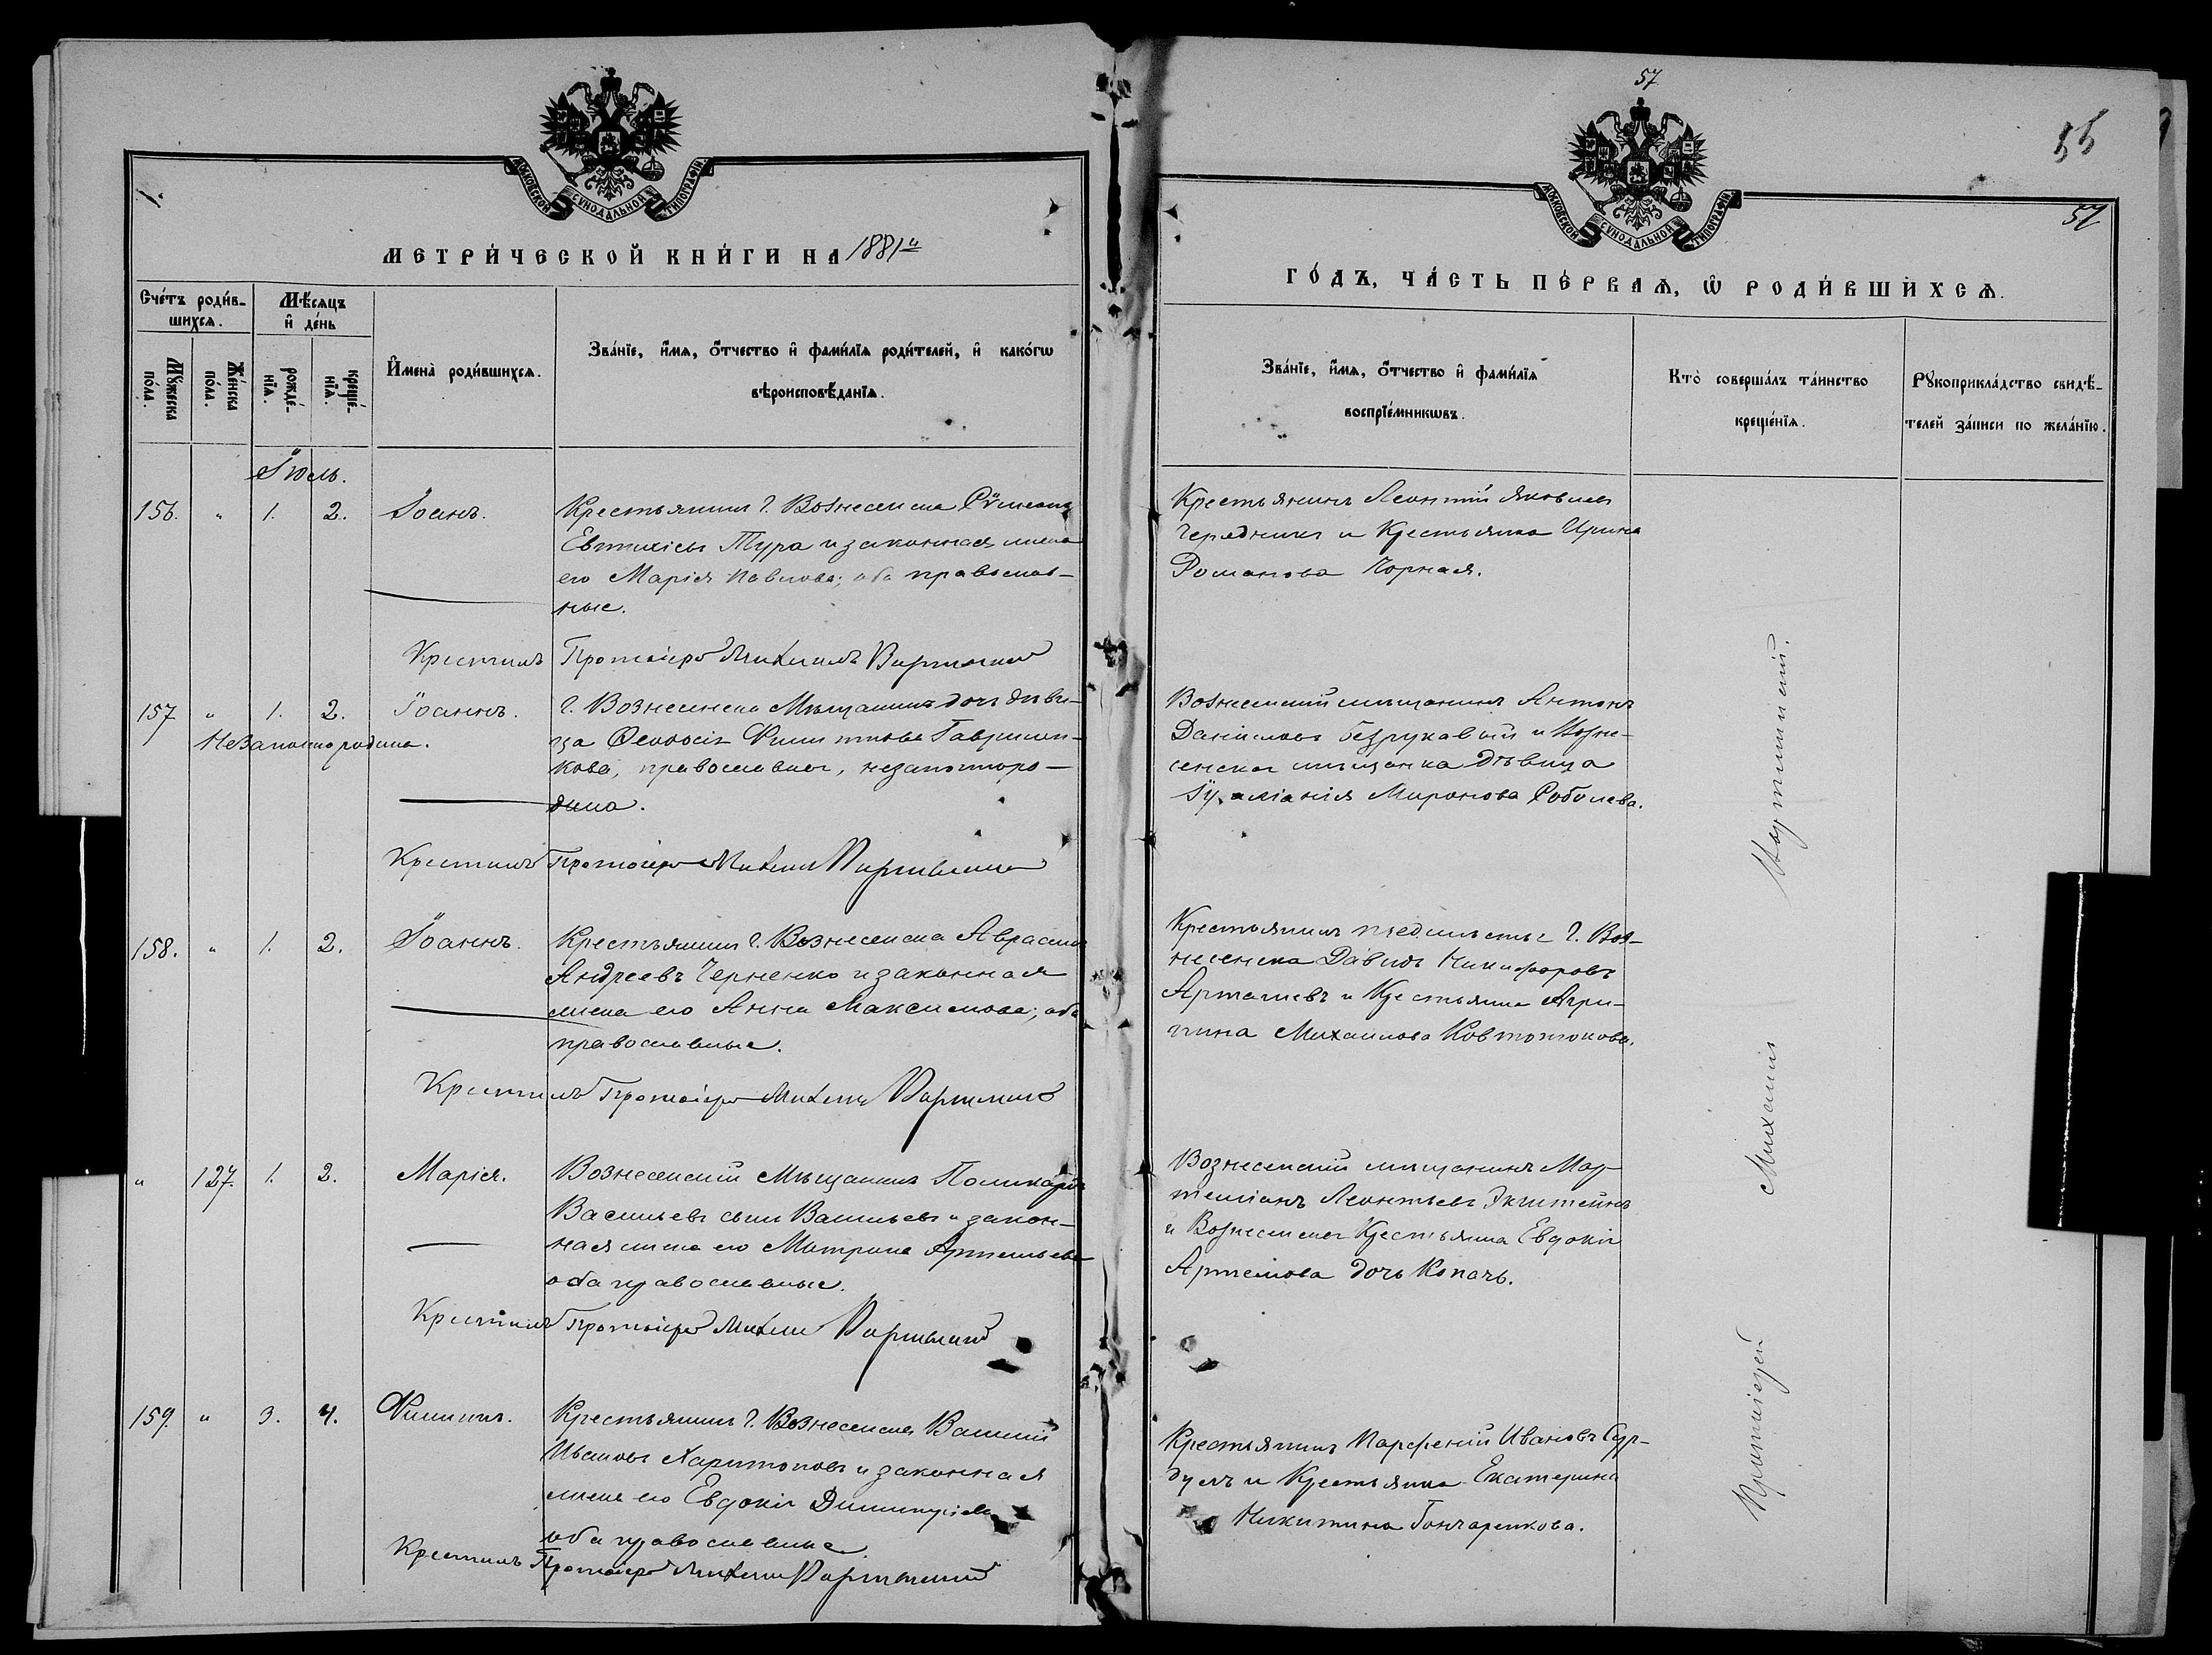 57
55
57
МОСКОВСКОЙ СѴНОДАЛЬНОЙ ТИПОГРАФІИ
МЕТРИ́ЧЕСКОЙ КНИ́ГИ НА 1881й
Сче́тъ роди́в-
шихсѧ.
Мѣ́сѧцъ
и҆ де́нь
Мꙋ́жеска
по́ла.
Же́нска
по́ла.
рожде́-
нїѧ.
креще́-
нїѧ.
И҆мена̀ роди́вшихсѧ.
Зва́нїе, и҆́мѧ, ѻ҆́тчество и҆ фами́лїѧ роди́телей, и҆ како́гѡ
вѣроисповѣ́данїѧ.
Іюль.
156. " 1. 2. Іоанъ. Крестьянинъ г. Вознесенска Сѵмеонъ
Евтихіевъ Тура и законная жена
его Марія Павлова; оба православ-
ные.
Крестилъ Протоіерей Михаилъ
157 " 1. 2. Іоаннъ. г. Вознесенска Мѣщанина дочь дѣви-
Незаконнорождена.
ца Ѳеодосія Филиппова Гаврилен-
кова, православная, незаконноро-
ждена.
Крестилъ Протоіерей Михаилъ
158. " 1. 2. Іоаннъ. Крестьянинъ г. Вознесенска Аврамъ
Андреевъ Черненко и законная
жена его Анна Максимова; оба
православные.
Крестилъ Протоіерей Михаилъ
" 127. 1. 2. Марія. Вознесенскій Мѣщанинъ Поликарпъ
Васильевъ сынъ Васильевъ и закон-
ная жена его Матрона Артемьева
оба православные.
Крестилъ Протоіерей Михаилъ
159. " 3. 4. Филиппъ. Крестьянинъ г. Вознесенска Василій
Ивановъ Харитоновъ и законная
жена его Евдокія Димитріева
оба православные.
Крестилъ Протоіерей Михаилъ
МОСКОВСКОЙ СѴНОДАЛЬНОЙ ТИПОГРАФІИ
ГО́ДЪ, ЧА́СТЬ ПЕ́РВАѦ, Ѡ҆ РОДИ́ВШИХСѦ.
Зва́нїе, и҆́мѧ, ѻ҆́тчество и҆ фами́лїѧ
воспрїе́мникѡвъ.
Кто̀ соверша́лъ та́инство
креще́нїѧ.
Рꙋкоприкла́дство свидѣ́-
телей за́писи по жела́нїю.
Крестьянинъ Леонтій Яковлевъ
Чередникъ и Крестьянка Ирина
Романова Чорная.
Вознесенскій мѣщанинъ Антонъ
Даніиловъ Безрукавый и Возне-
сенская мѣщанка дѣвица
Іуліанія Миронова Соболева.
Крестьянинъ предмѣстья г. Воз-
несенска Давидъ Никифоровъ
Арталіевъ и Крестьянка Агри-
пина Михаилова Ковтонюкова.
Вознесенскій мѣщанинъ Мар-
тиміанъ Леонтьевъ Экштейнъ
и Вознесенская Крестьянка Евдокія
Артемова дочь Копачъ.
Крестьянинъ Парфеній Ивановъ Сур-
дулъ и Крестьянка Екатерина
Никитина Гончаренкова.
Протоіерей Михаилъ